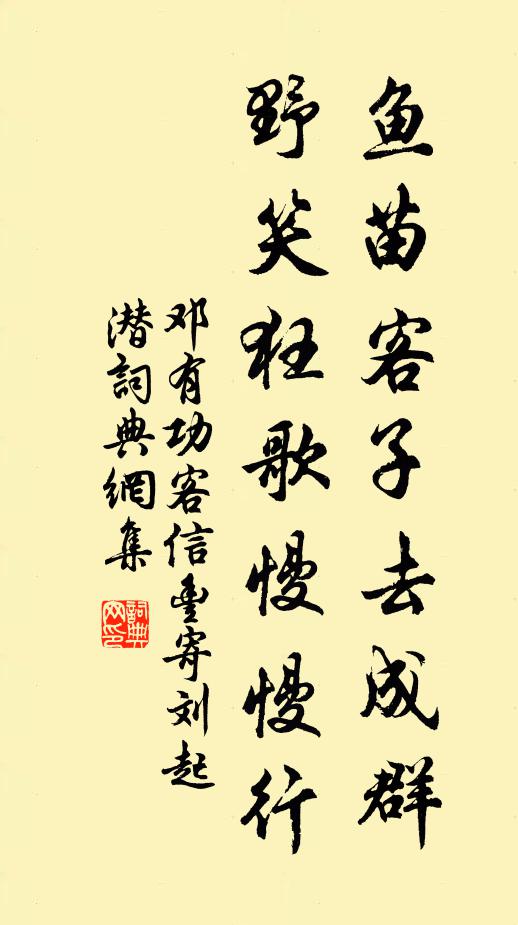 鱼苗客子去成群
野笑狂歌慢慢行
邓有功客信豊寄刘起
潜詞典網集
詞典网印